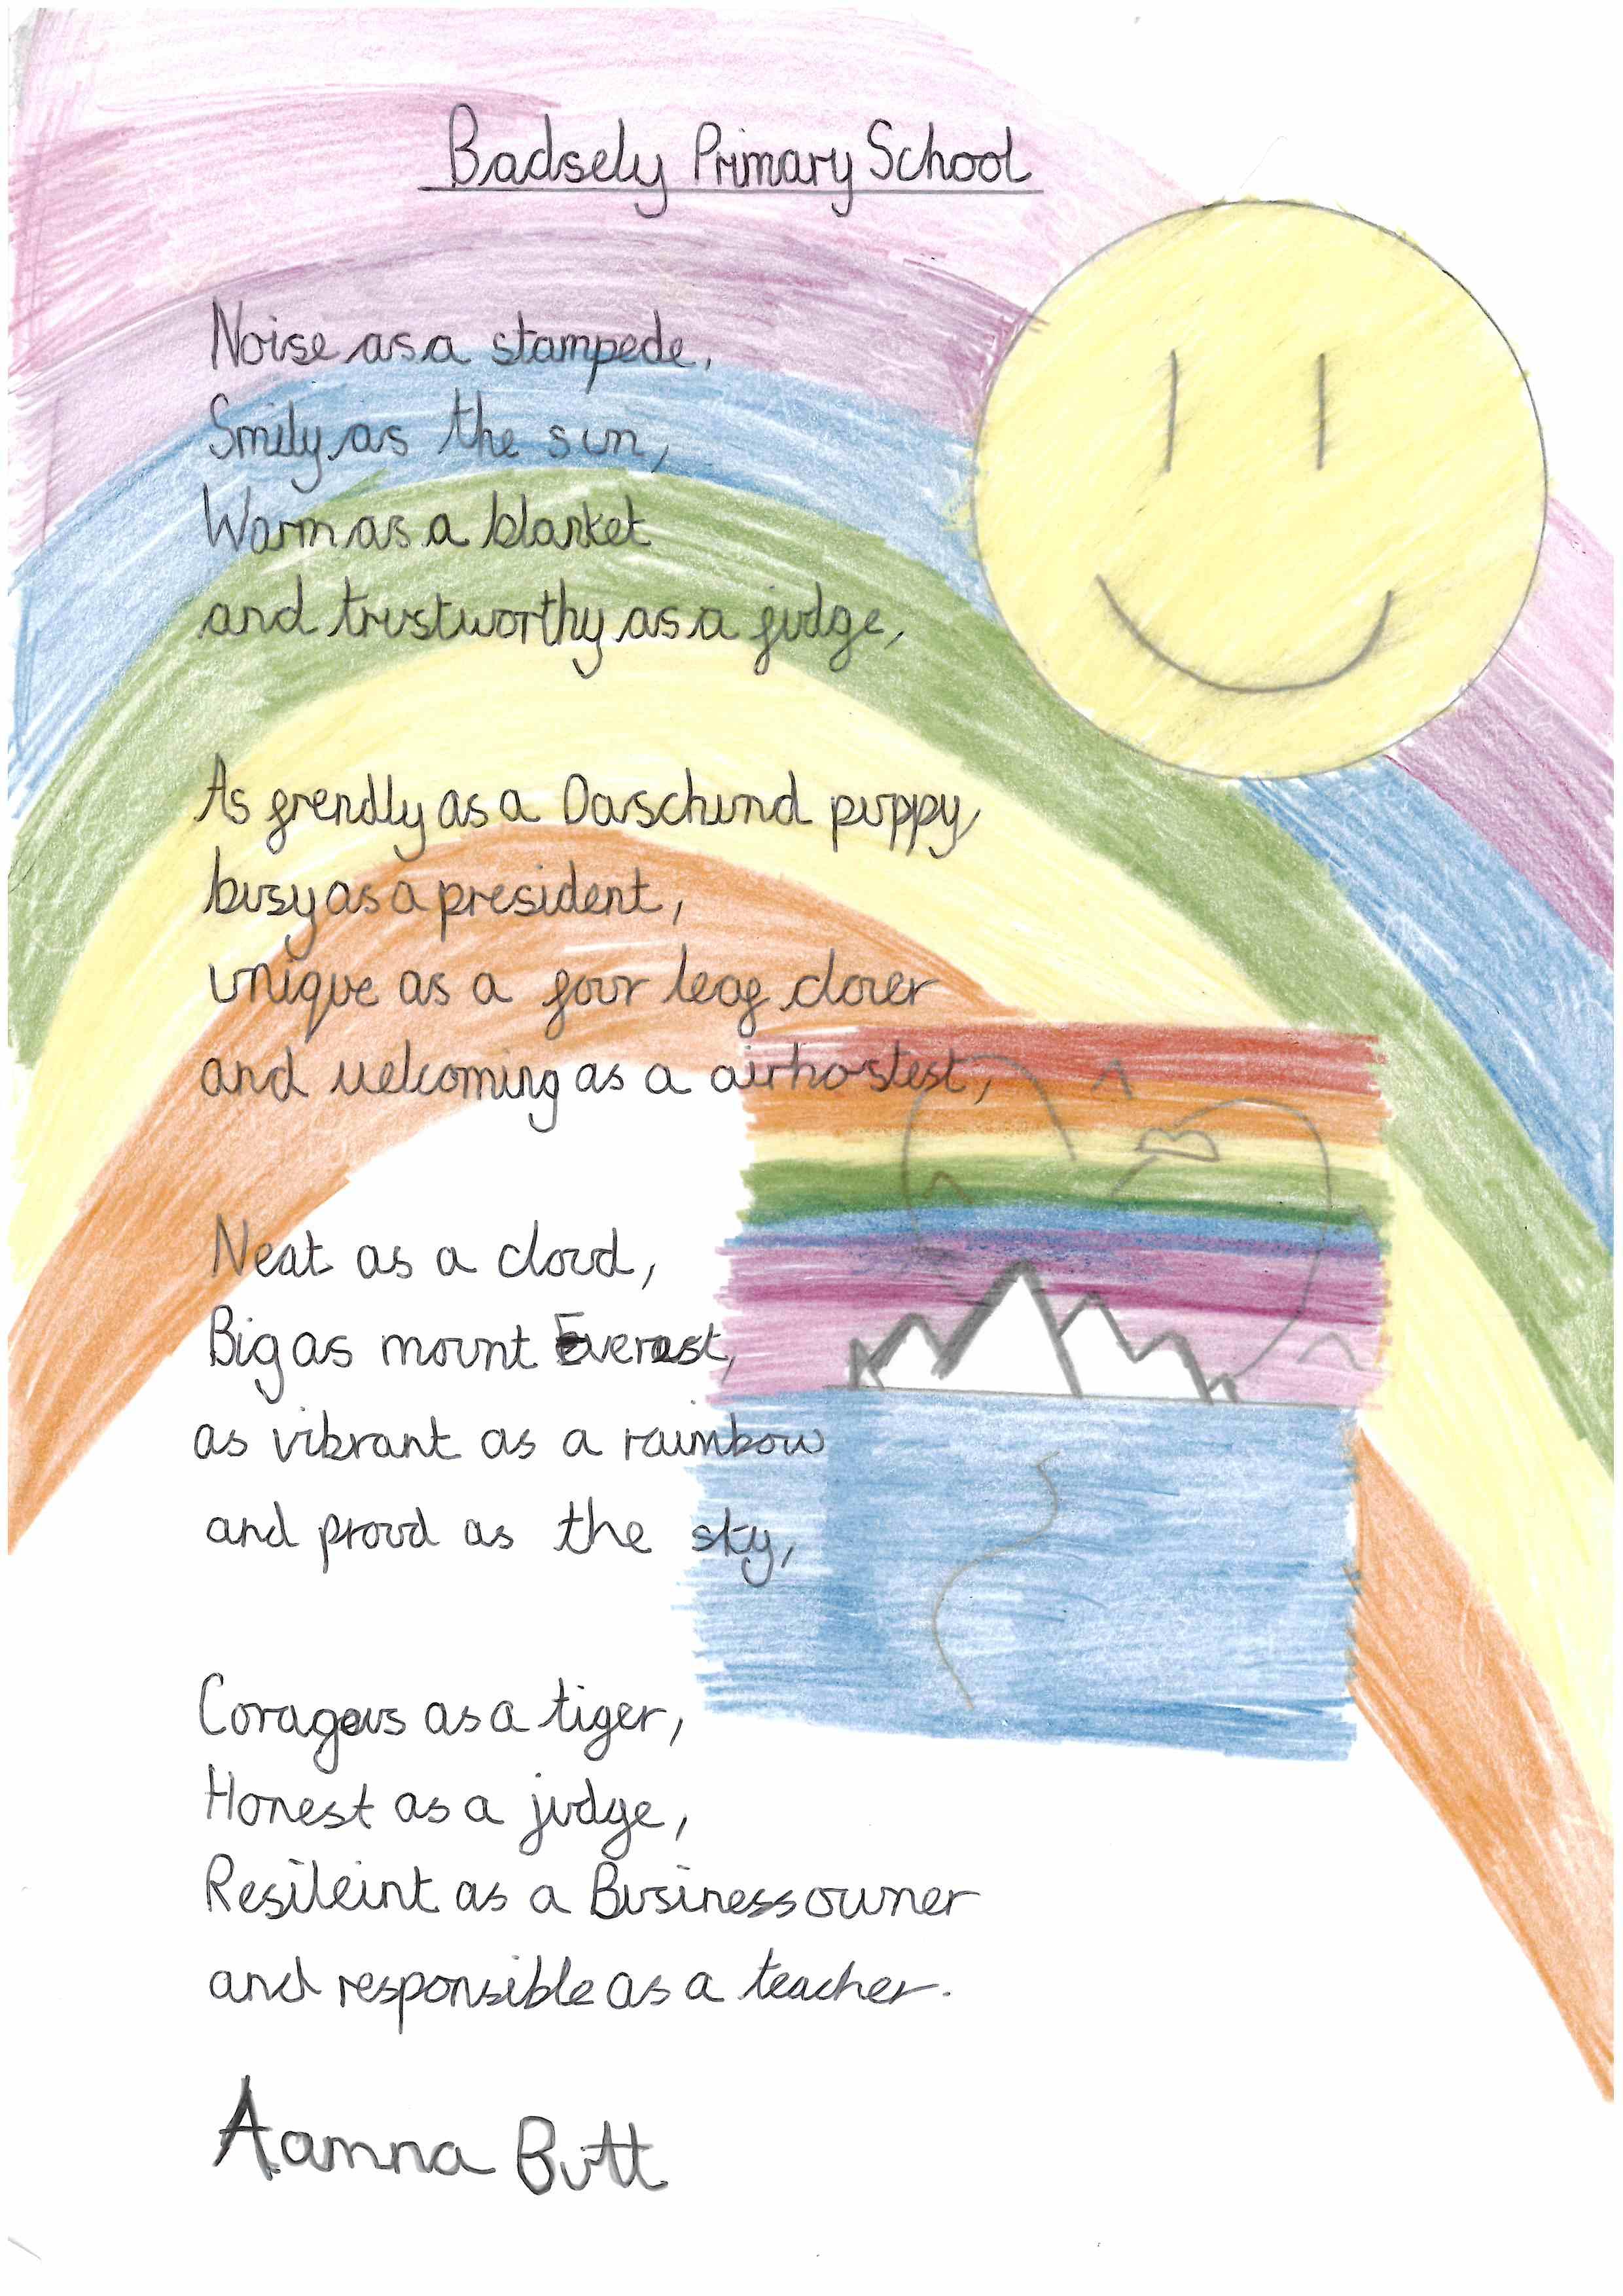 Badsely Primary School
Noise as a stampede,
Smily as the sun,
Warm as a blanket
and trustworthy as a judge,
As frendly as a Daschund puppy,
busy as a president,
unique as a four leaf clover
and welcoming as a airhostest,
Neat as a cloud,
Big as mount Everast,
as vibrant as a rainbow
and proud as the sky,
Corageus as a tiger,
Honest as a judge,
Resileint as a Business owner
and responsible as a teacher.
Aamna Butt